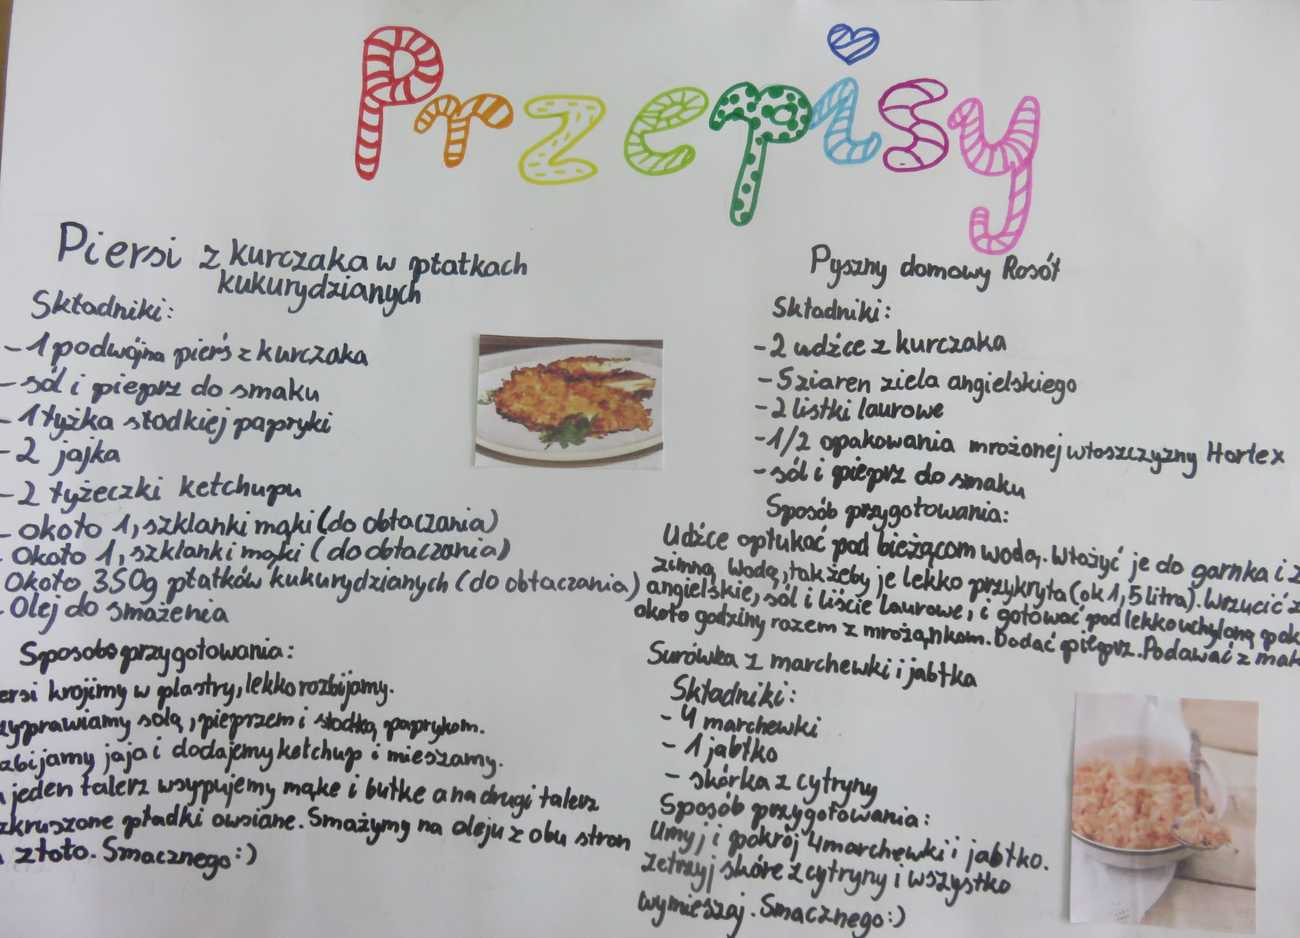 Przepisy
Piersi z kurczaka w płatkach
kukurydzianych
Składniki:
- 1 podwójna pierś z kurczaka
- sól i pieprz do smaku
- 1 łyżka słodkiej papryki
- 2 jajka
- 2 łyżeczki ketchupu
- około 1, szklanki mąki (do obtaczania)
- Około 1, szklanki mąki (do obtaczania)
Około 350g płatków kukurydzianych (do obtaczania)
- Olej do smażenia
Sposobo przygotowania:
ersi krojimy w plastry, lekko rozbijamy.
zyprawiamy solą, pieprzem i słodką paprykom.
zbijamy jaja i dodajemy ketchup i mieszamy.
jeden talerz wsypujemy mąke i bułke a na drugi talerz
zkruszone pładki owsiane. Smażymy na oleju z obu stron
złoto. Smacznego :)
Pyszny domowy Rosół
Składniki:
- 2 udźce z kurczaka
- 5 ziaren ziela angielskiego
- 2 listki laurowe
- 1/2 opakowania mrożonej włoszczyzny Hortex
- sól i pieprz do smaku
Sposób przygotowania:
Udźce opłukać pod bieżącom wodą. Włożyć je do garnka i z
zimną wodą, tak żeby je lekko przykryła (ok 1,5 litra). Wrzucić z
angielskie, sól i liście laurowe, i gotować pod lekko uchyloną pok
około godziny razem z mrożąnkom. Dodać pieprz. Podawać z mak
Surówka z marchewki i jabłka
Składniki:
- 4 marchewki
- 1 jabłko
- skórka z cytryny
Sposób przygotowania:
Umyj i pokrój 4 marchewki i jabłko.
zetrzyj skóre z cytryny i wszystko
wymieszaj. Smacznego :)